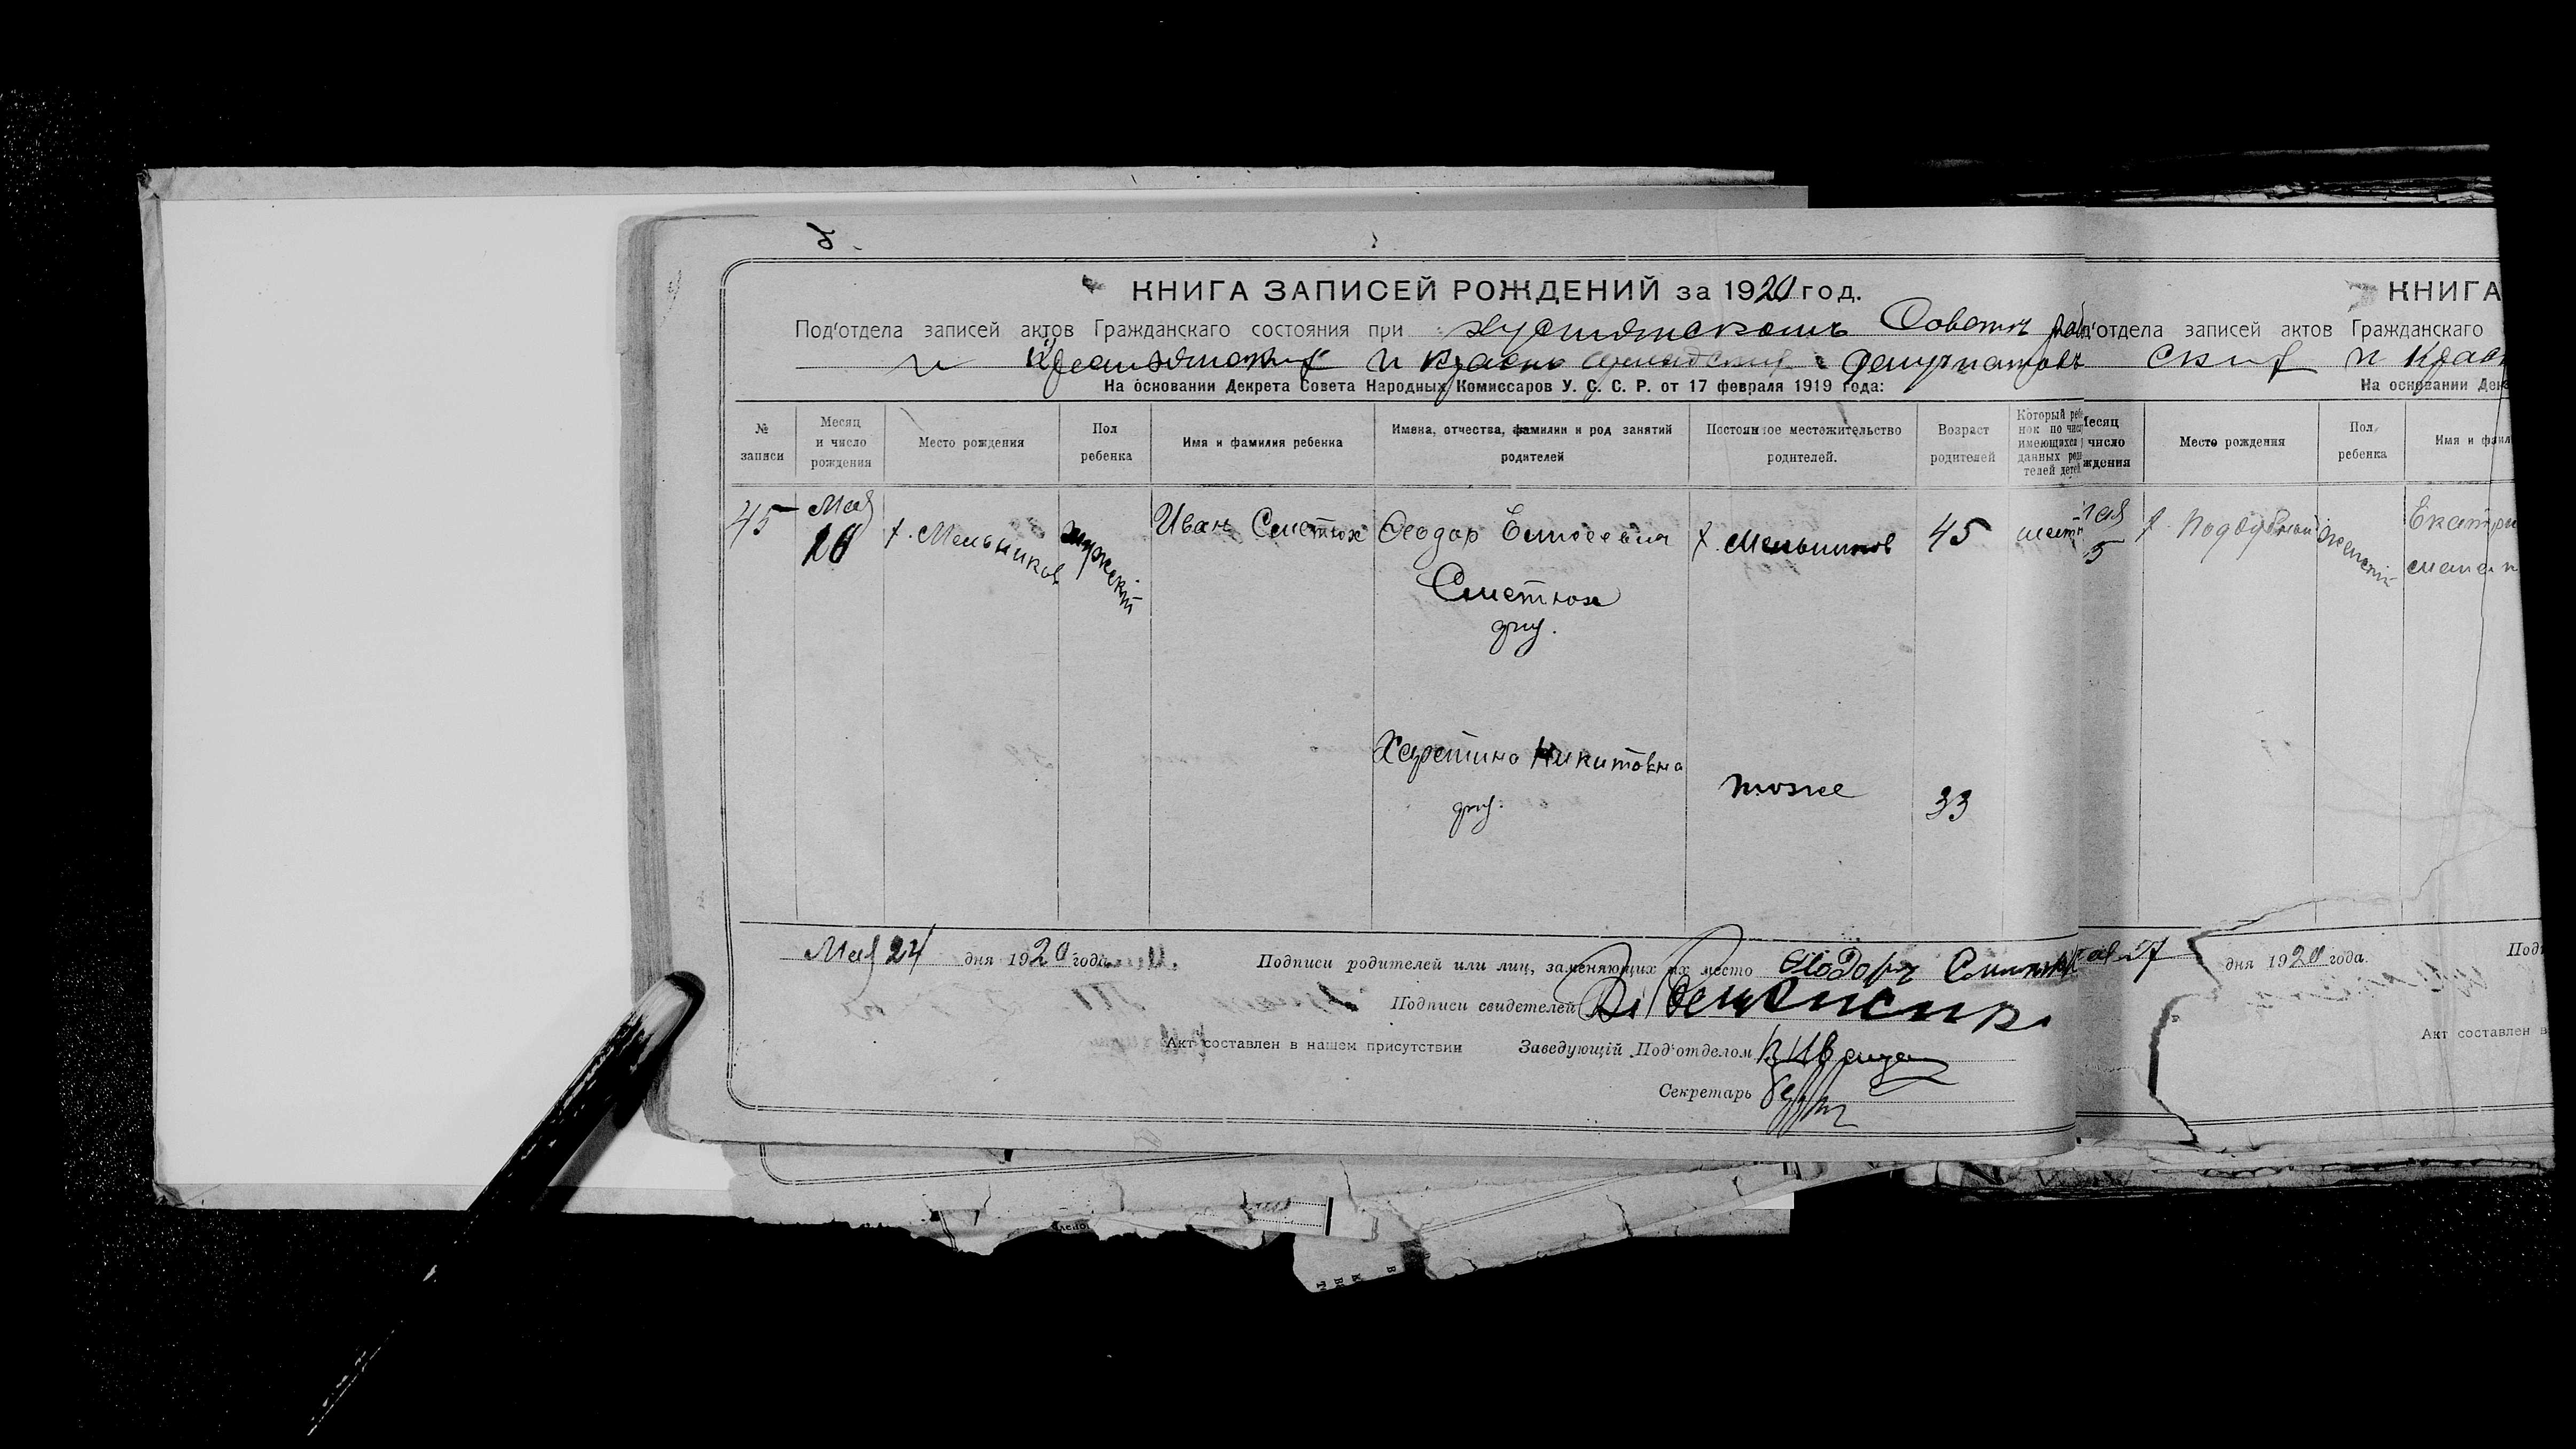 КНИГА ЗАПИСЕЙ РОЖДЕНИЙ за 1920 год.
Под'отдела записей актов Гражданскаго состояния при Советъ раб
и Крестьянских и красно депутатовъ
На основании Декрета Совета Народных Комиссаров У. С. С. Р. от 17 февраля 1919 года:
№ записи
Месяц и число рождения
Место рождения
Пол ребенка
Имя и фамилия ребенка
Имена, отчества, фамилии и род занятий родителей
Постоянное местожительство родителей.
Возраст родителей
Который ребе
нок по чис
имеющихся
данных род
телей детей
45
Мая
20
х. Мельников
мужеский
Иван Сметюх
Феодор Елисеевич
Сметюх
х. Мельников
45
шест
Харитина Никитовна
тоже
33
Мая 24 дня 1920 года
Подписи родителей или лиц, заменяющих их место Феодоръ
Подписи свидетелей
Акт составлен в нашем присутствии
Заведующій Под'отделом
Секретарь
КНИГА
отдела записей актов Гражданскаго
ских и Крас
На основании Дек
Месяц
число
ждения
Место рождения
Пол ребенка
Имя и фами
5
х.
женский
Екатери
27 дня 1920 года.
Под
Акт составлен в